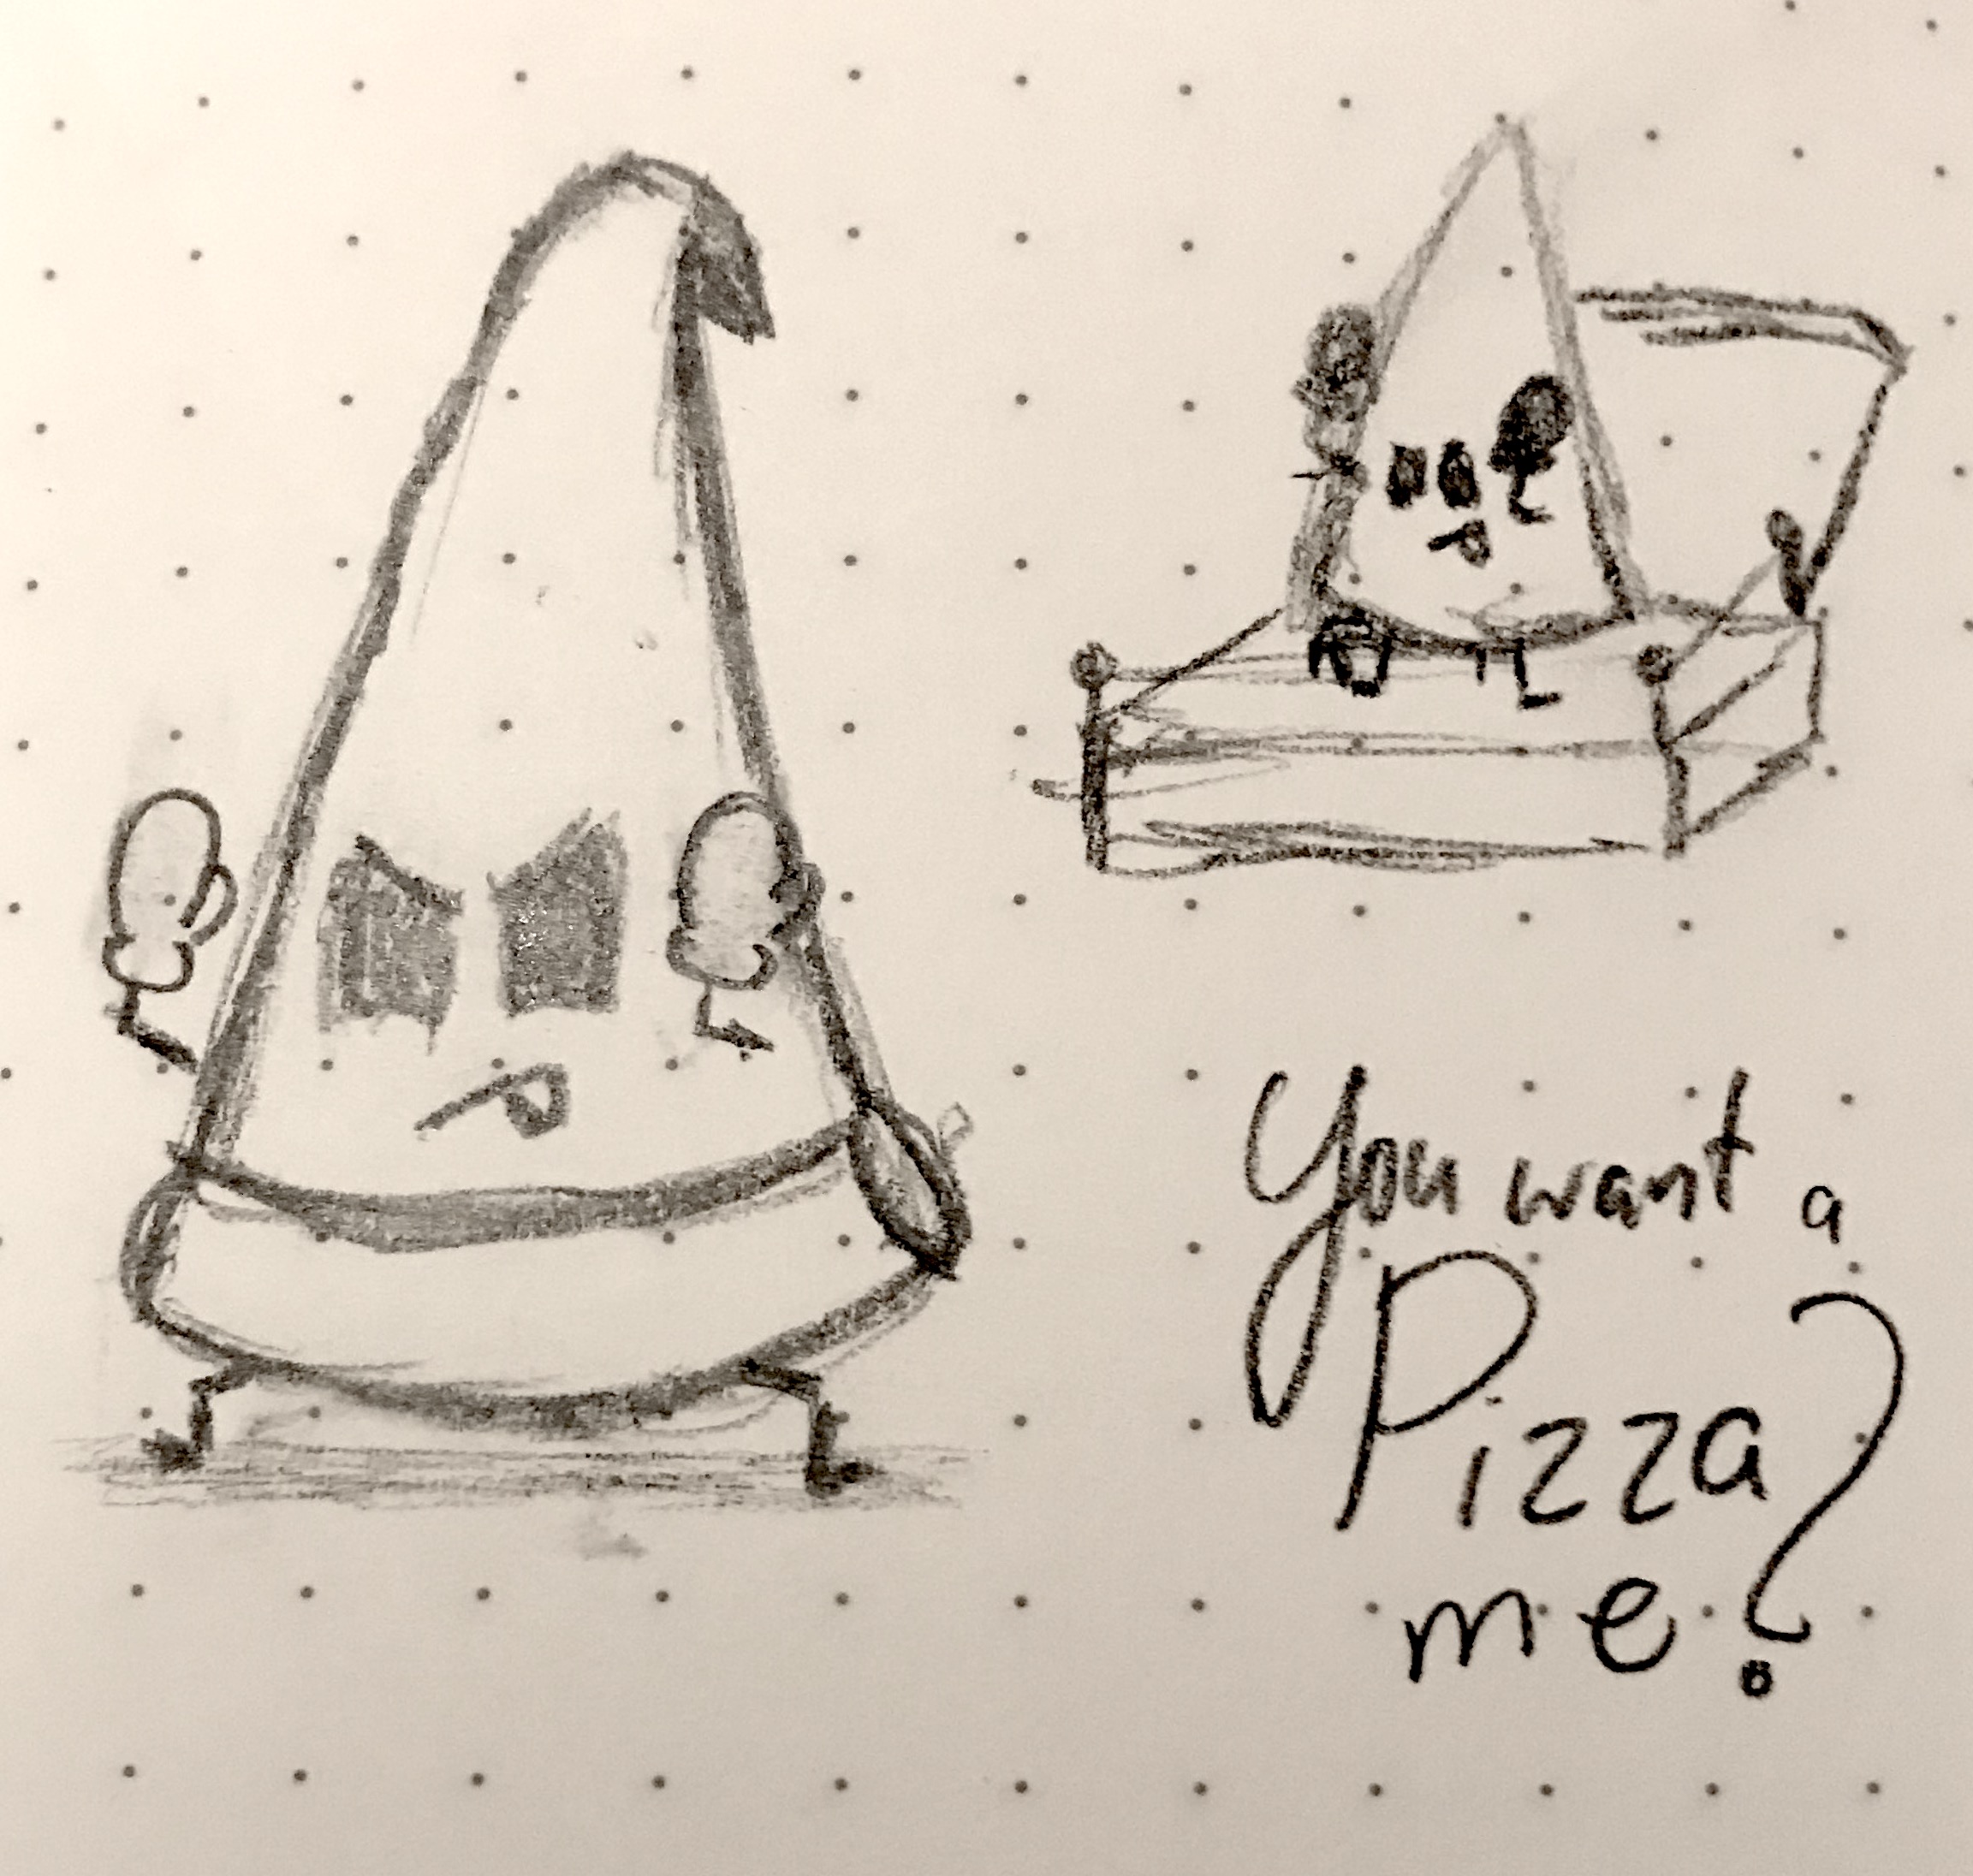 You want a
Pizza
me?